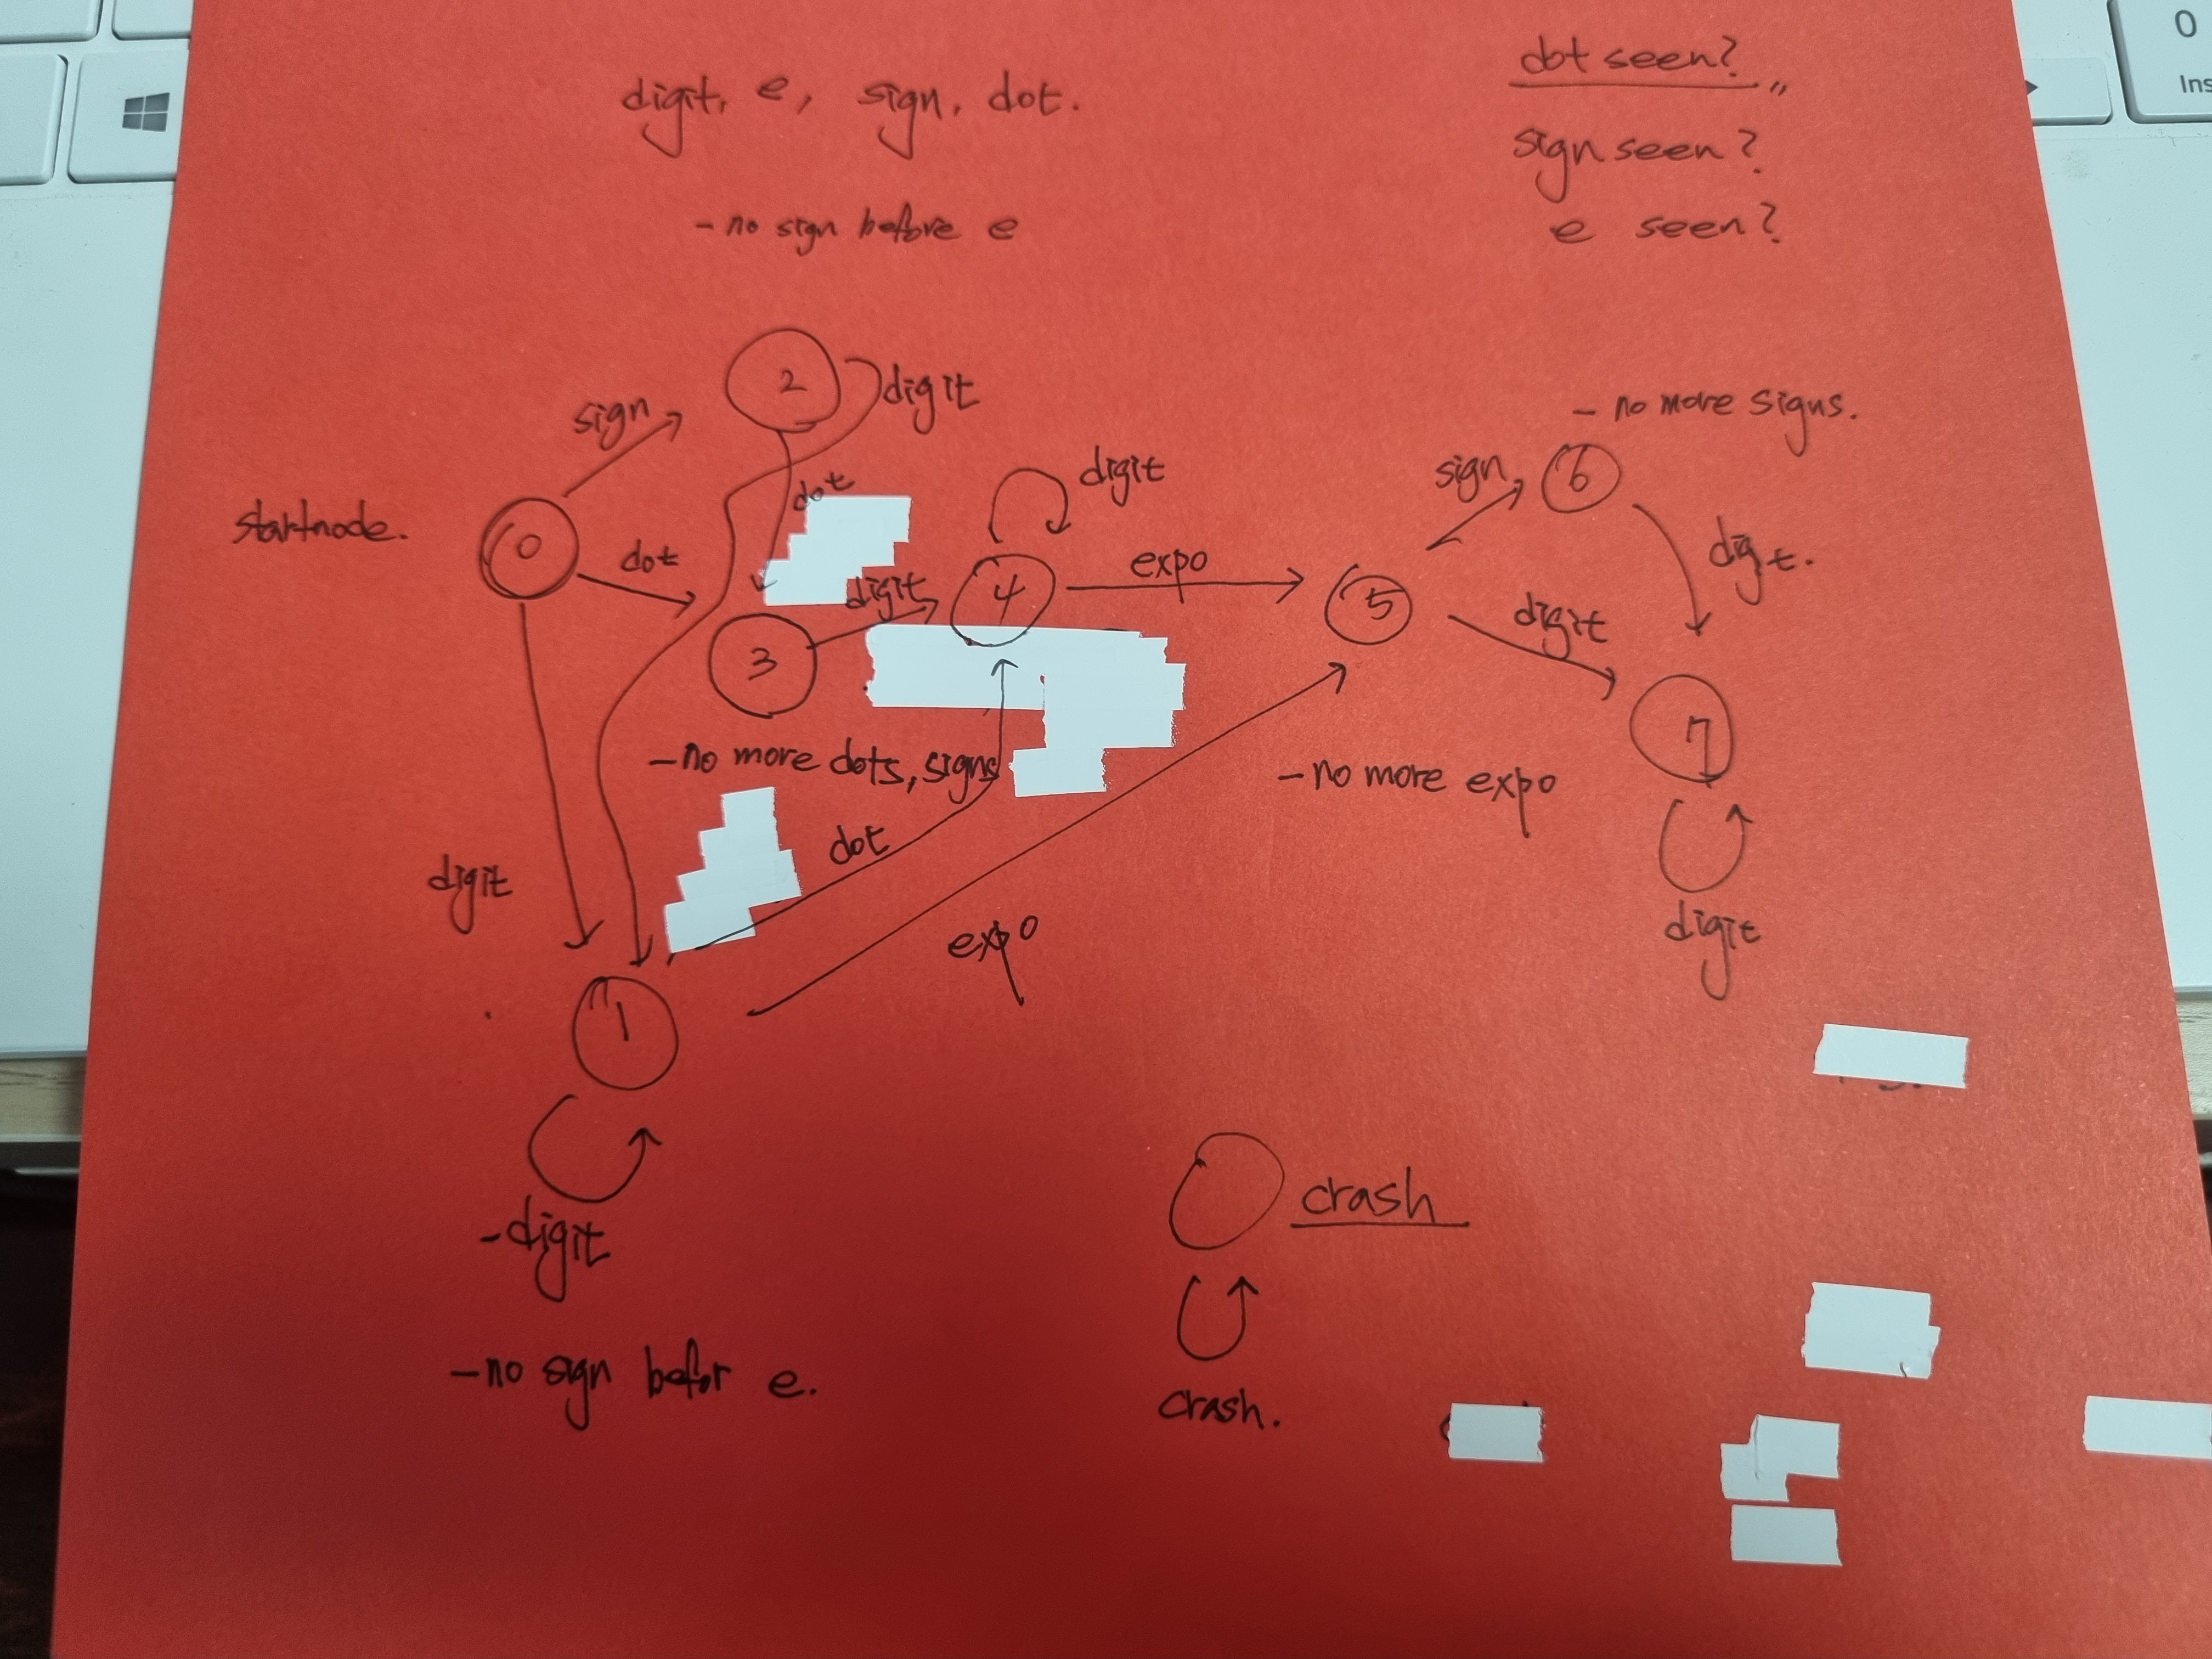 digit, e, sign, dot.
dot seen?
sign seen?
- no sign before e
e seen?
2
digit
sign
- no more signs.
6
sign
digit
dot
startnode.
0
dot
digit
4
expo
5
digit
digit.
3
7
- no more dots, signs
- no more expo
dot
digit
digit
expo
1
- digit
crash
- no sign befor e.
crash.
0
Ins